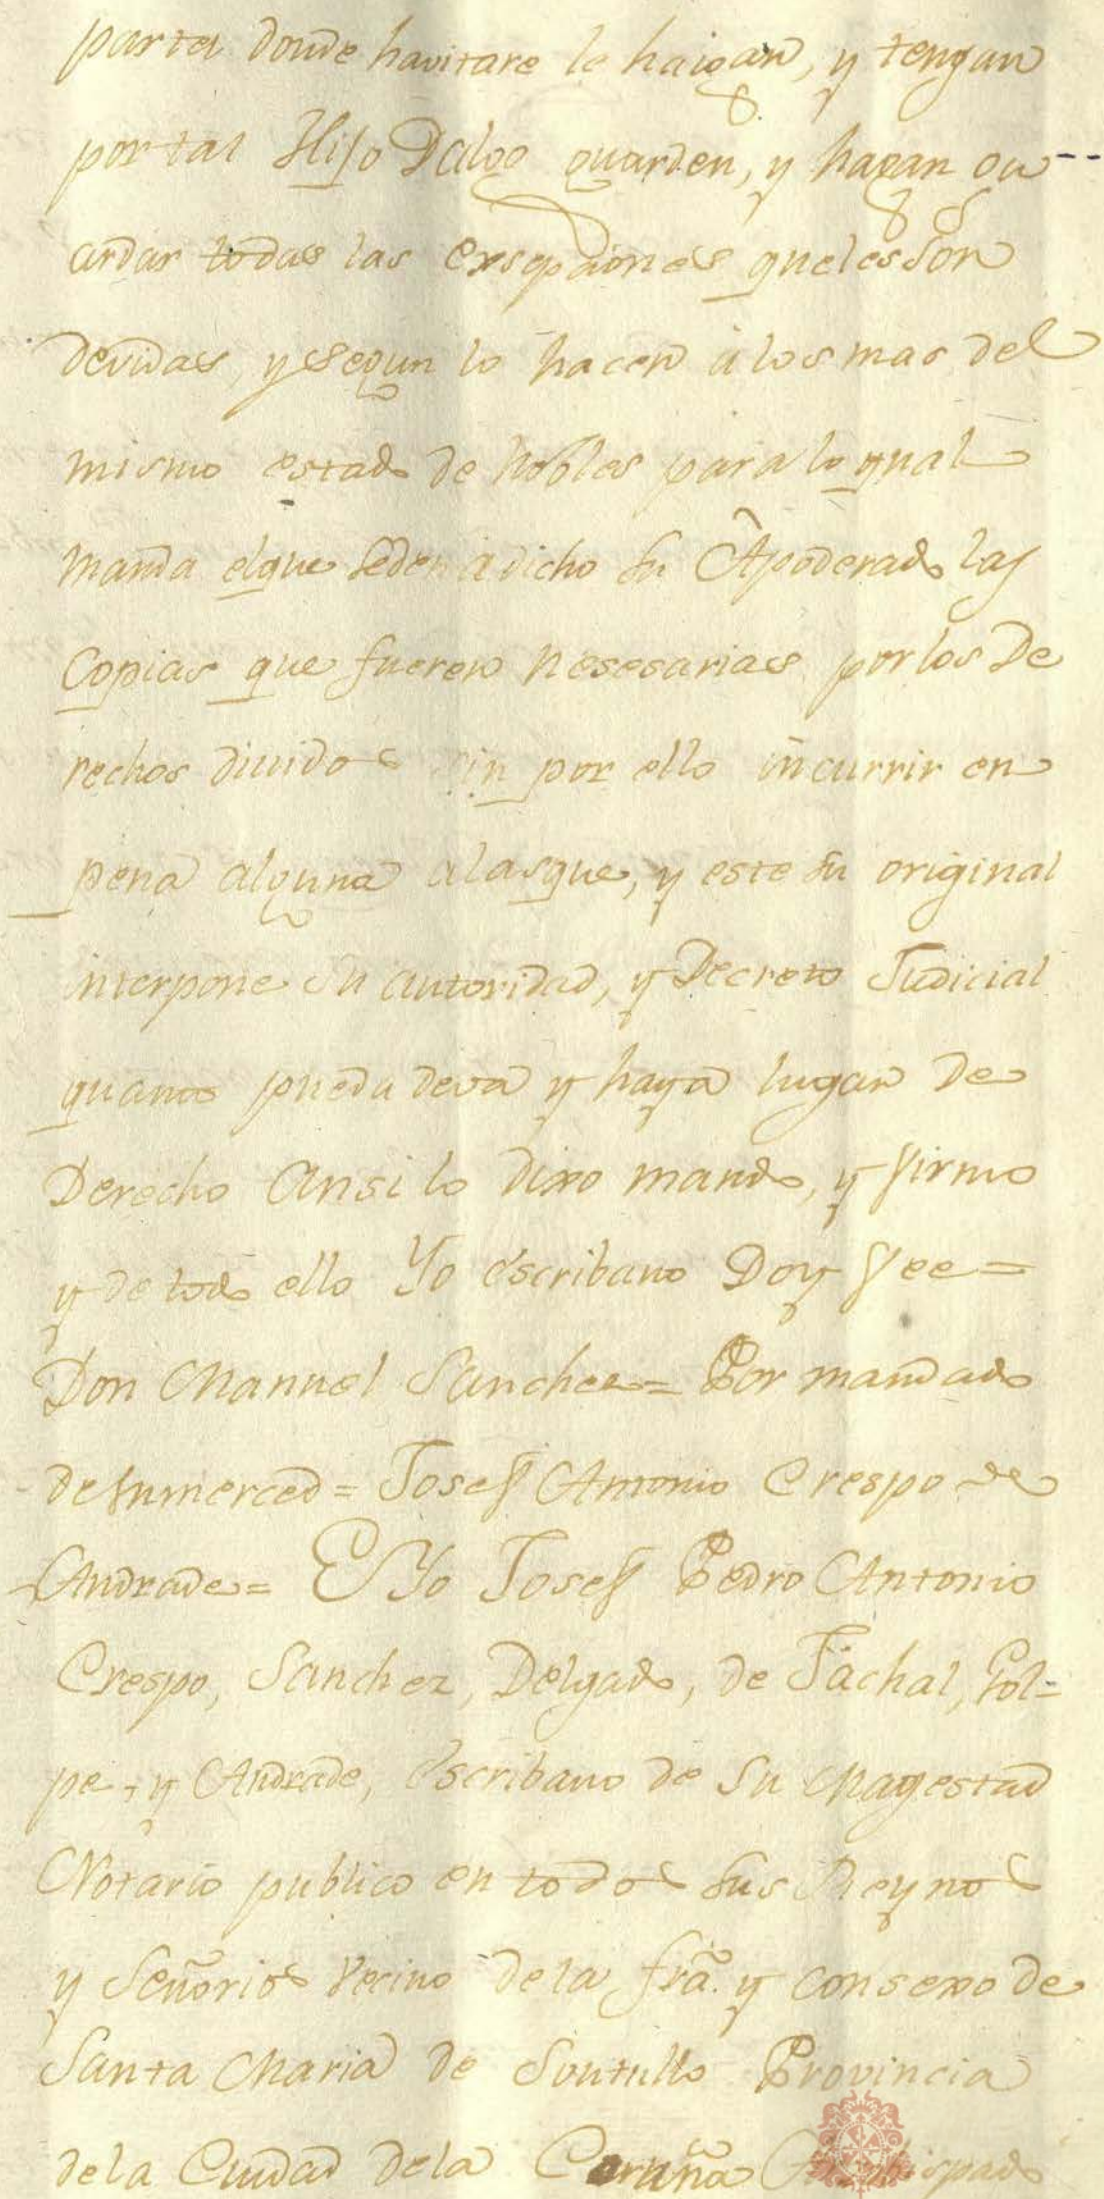 partes donde havitare le haigan, y tengan
por tal Hijo Dalgo guarden, y hagan gu--
ardar todas las exsepciones que les son
devidas, y segun lo hacen á los mas del
mismo estado de Nobles para lo qual
manda el que se den a dicho su Apoderado las
Copias que fueren nesesarias por los De
rechos dividos sin por ello incurrir en
pena alguna a las que, y este su original
interpone su autoridad, y Decreto Judicial
quanto pueda deva y haya lugar de
Derecho Ansi lo dixo mando, y firmo
y de todo ello Yo escribano Doy fee=
Don Manuel Sanchez= Por mandado
de su merced= Josef Antonio Crespo de
Andrade= E Yo Josef Pedro Antonio
Crespo, Sanchez, Delgado, de Fachal, Gol=
pe, y Andrade, escribano de Su Magestad
Notario publico en todos sus Reynos
y Señorios vecino de la frã. y consexo de
Santa Maria de Soutullo Provincia
de la Ciudad de la Coruña Arzobispado